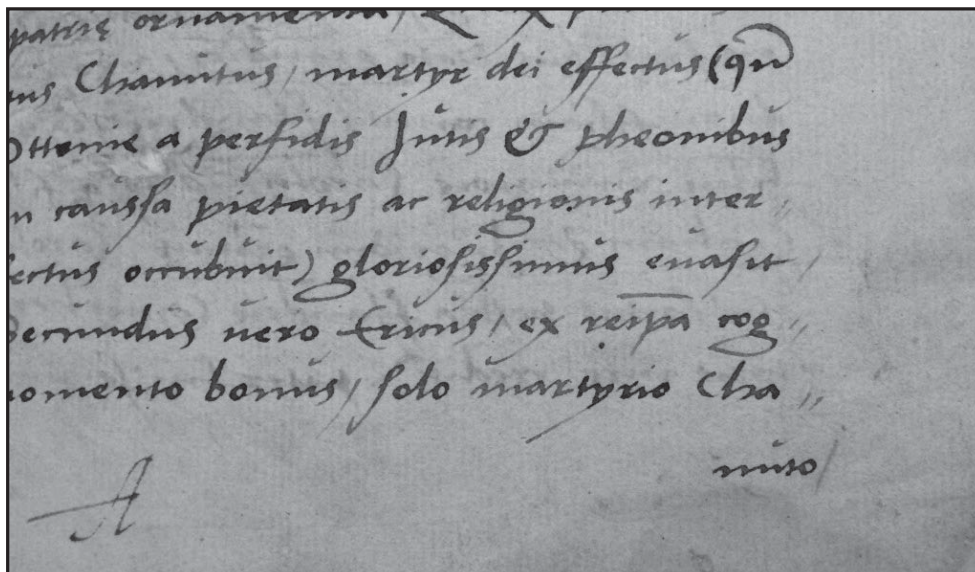 patrię ornamenta,
Chanutus/ martyr dei effectus (qū
Ottonie a perfidis Jutis & pheonibus
in caussa pietatis ac religionis inter,,
fectus occubuit) gloriosissimus euasit/
Secundus uero Ericus/ ex reip̄a cog,,
nomento bonus/ solo martyrio Cha,,
nuto/
A